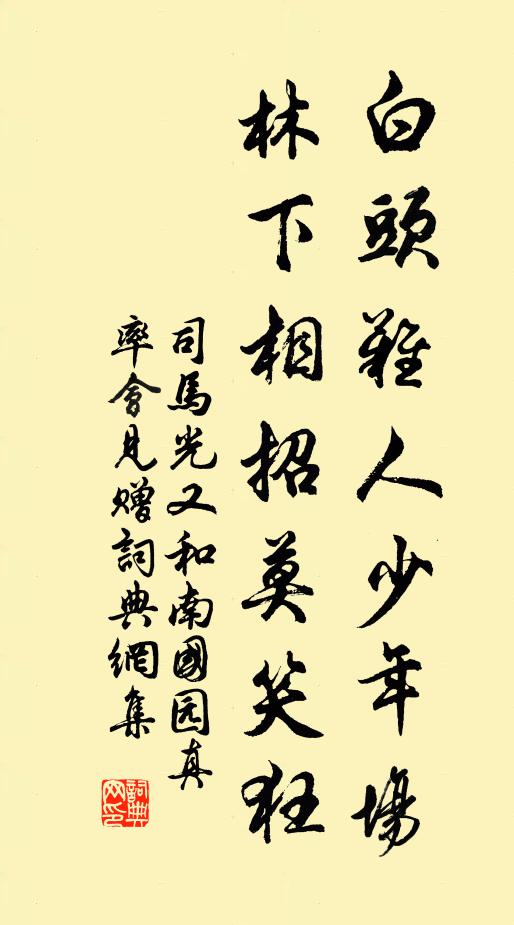 白頭難人少年場
林下相招莫笑狂
司馬光又和南國园真
率會見贈詞典網集
詞典网印